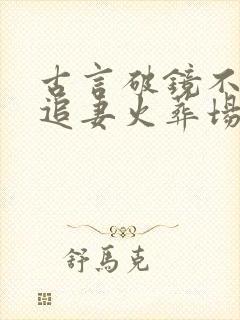 古言破鏡不
追妻火葬場
舒馬克